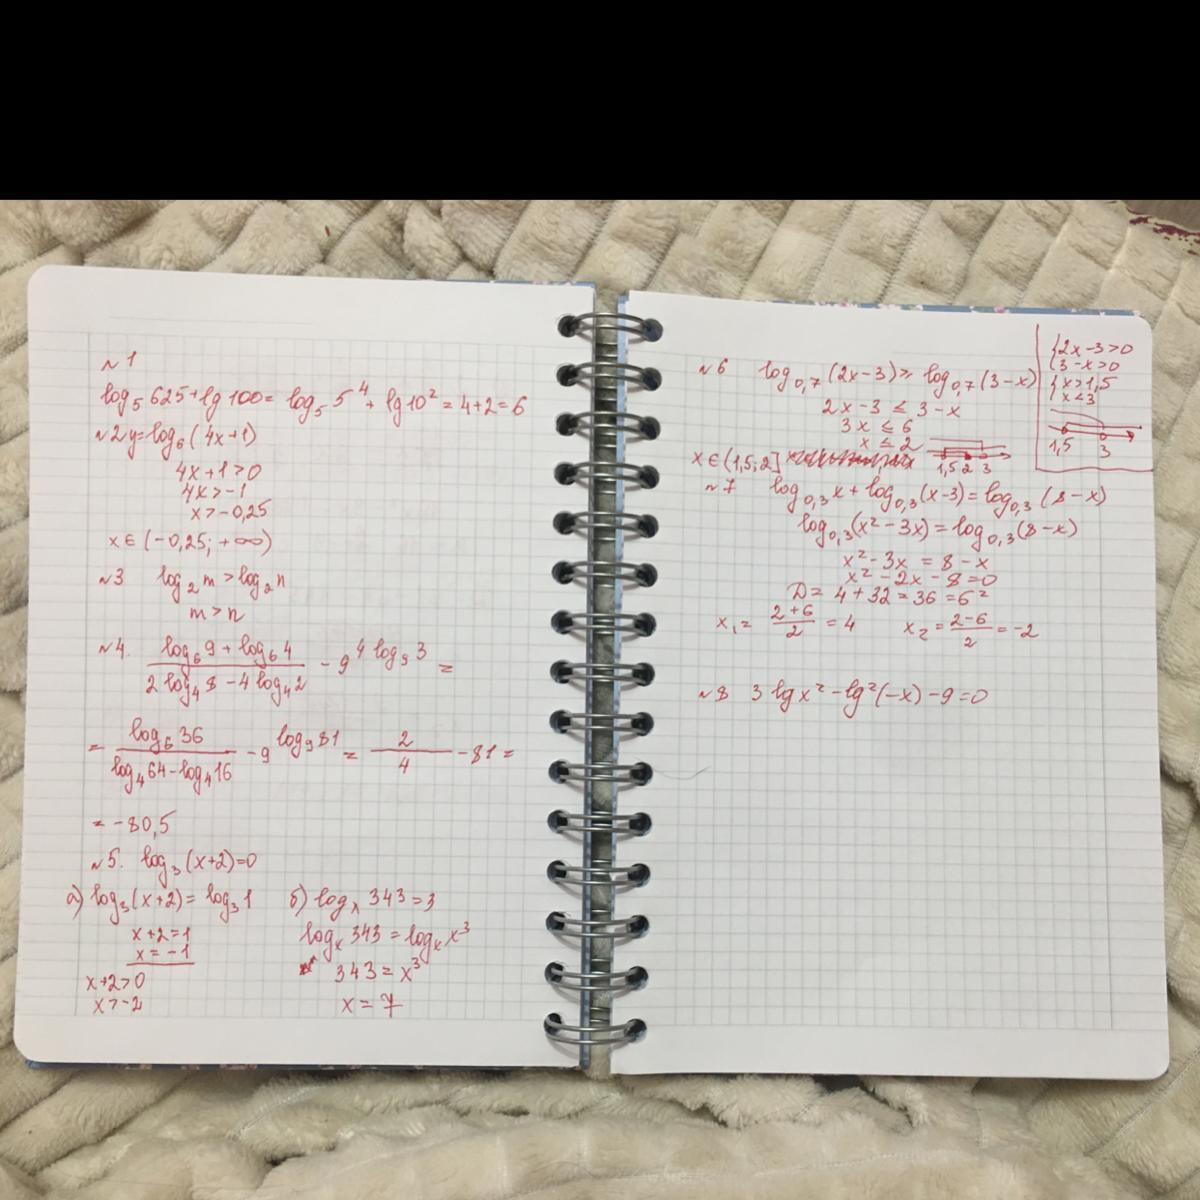 №1
log₅ 625 + lg 100 = log₅ 5⁴ + lg 10² = 4+2 = 6
№2 y = log₆ (4x+1)
4x+1 > 0
4x > -1
x > -0,25
x ∈ (-0,25; +∞)
№3 log₂ m > log₂ n
m > n
№4. (log₆ 9 + log₆ 4) / (2 log₄ 8 - 4 log₄ 2) - 9^(4 log₉ 3) =
= log₆ 36 / (log₄ 64 - log₄ 16) - 9^(log₉ 81) = 2/4 - 81 =
= -80,5
№5. log₃ (x+2) = 0
а) log₃ (x+2) = log₃ 1
x+2 = 1
x = -1
x+2 > 0
x > -2
б) logₓ 343 = 3
logₓ 343 = logₓ x³
343 = x³
x = 7
№6 log₀,₇ (2x-3) ≥ log₀,₇ (3-x)
2x-3 ≤ 3-x
3x ≤ 6
x ≤ 2
{2x-3 > 0
{3-x > 0
{x > 1,5
x < 3
1,5 3
x ∈ (1,5; 2] 1,5 2 3
№7 log₀,₃ x + log₀,₃ (x-3) = log₀,₃ (8-x)
log₀,₃ (x² - 3x) = log₀,₃ (8-x)
x² - 3x = 8 - x
x² - 2x - 8 = 0
D = 4 + 32 = 36 = 6²
x₁ = (2+6)/2 = 4 x₂ = (2-6)/2 = -2
№8 3 lg x² - lg² (-x) - 9 = 0